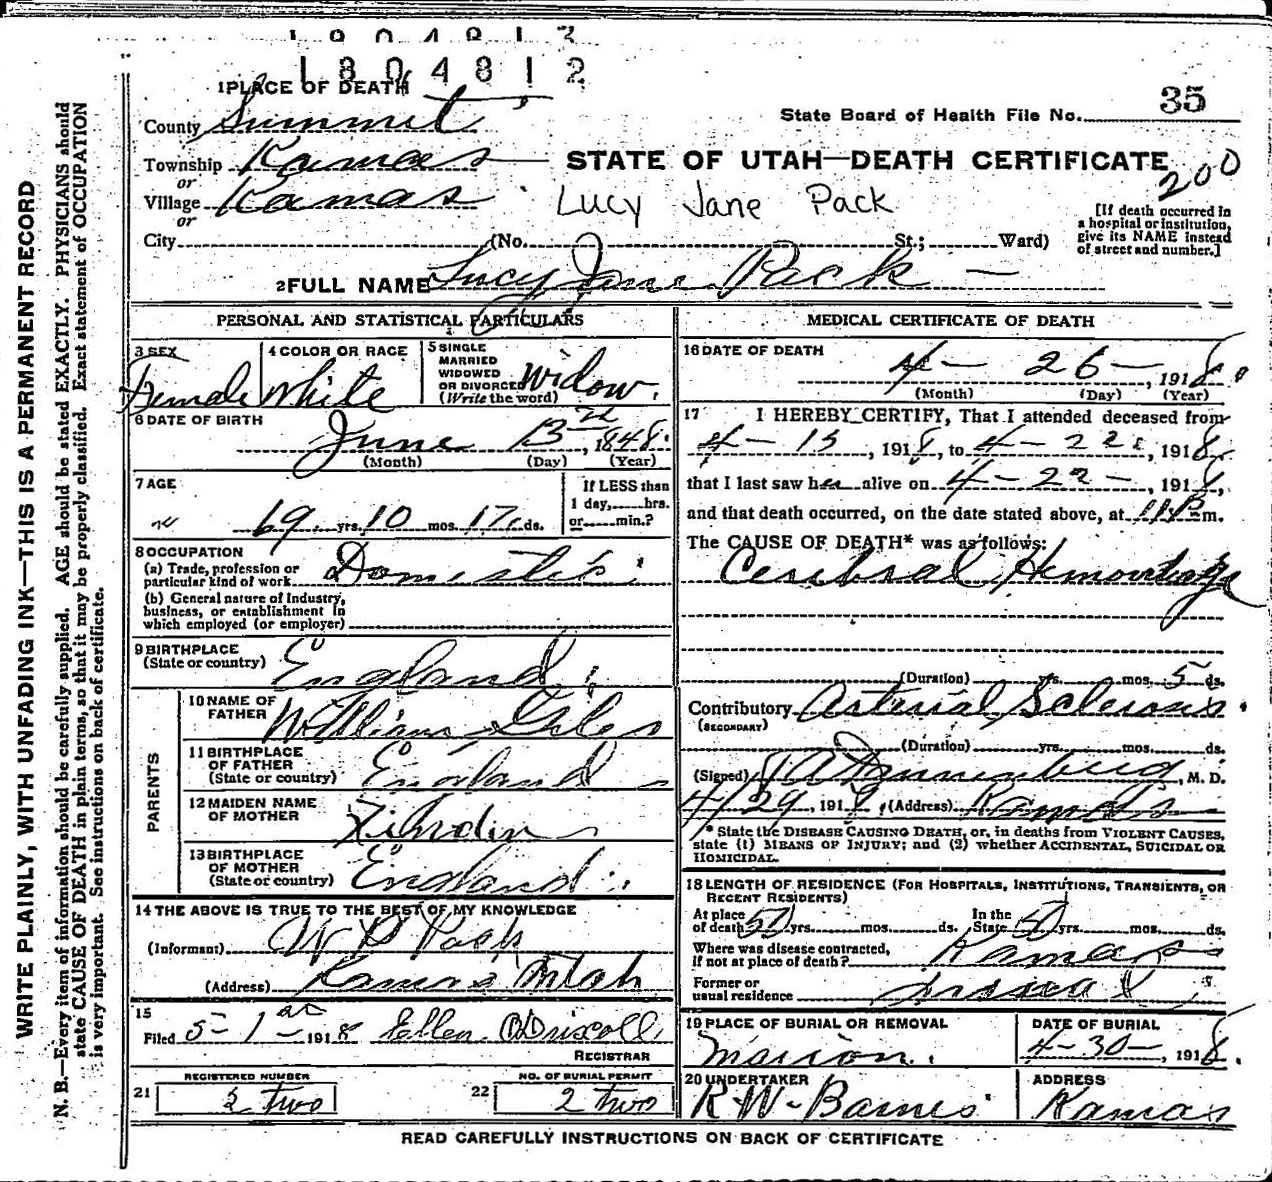 1804812
1804812
1 PLACE OF DEATH
State Board of Health File No. 35
County Summit
Township Kamas
STATE OF UTAH—DEATH CERTIFICATE
200
or
Village Kamas
Lucy Jane Pack
or
City (No. St.; Ward)
[If death occurred in
a hospital or institution,
give its NAME instead
of street and number.]
2 FULL NAME Lucy Jane Pack
PERSONAL AND STATISTICAL PARTICULARS
3 SEX Female
4 COLOR OR RACE White
5 SINGLE
MARRIED
WIDOWED
OR DIVORCED
(Write the word) Widow
6 DATE OF BIRTH
June 13 1848
(Month) (Day) (Year)
7 AGE
69 yrs. 10 mos. 17 ds.
If LESS than
1 day, hrs.
or min.?
8 OCCUPATION
(a) Trade, profession or
particular kind of work Domestic
(b) General nature of Industry,
business, or establishment in
which employed (or employer)
9 BIRTHPLACE
(State or country) England
PARENTS
10 NAME OF
FATHER William Giles
11 BIRTHPLACE
OF FATHER
(State or country) England
12 MAIDEN NAME
OF MOTHER
13 BIRTHPLACE
OF MOTHER
(State or country) England
14 THE ABOVE IS TRUE TO THE BEST OF MY KNOWLEDGE
(Informant) W P Pack
(Address) Kamas Utah
15
Filed 5-1st 1918 Ellen O'Driscoll
REGISTRAR
REGISTERED NUMBER
21 2 two
NO. OF BURIAL PERMIT
22 2 two
MEDICAL CERTIFICATE OF DEATH
16 DATE OF DEATH
4- 26-, 1918
(Month) (Day) (Year)
17 I HEREBY CERTIFY, That I attended deceased from
4-15, 1918, to 4-22, 1918,
that I last saw her alive on 4-22-, 1918,
and that death occurred, on the date stated above, at 11 P m.
The CAUSE OF DEATH* was as follows:
Cerebral Hemorrhage
(Duration) yrs. mos. 5 ds.
Contributory Arterial Sclerosis
(SECONDARY)
(Duration) yrs. mos. ds.
(Signed) , M. D.
4/29, 1918, (Address) Kamas
* State the DISEASE CAUSING DEATH, or, in deaths from VIOLENT CAUSES,
state (1) MEANS OF INJURY; and (2) whether ACCIDENTAL, SUICIDAL OR
HOMICIDAL.
18 LENGTH OF RESIDENCE (FOR HOSPITALS, INSTITUTIONS, TRANSIENTS, OR
RECENT RESIDENTS)
At place
of death 50 yrs. mos. ds.
In the
State 50 yrs. mos. ds.
Where was disease contracted,
if not at place of death? Kamas
Former or
usual residence
19 PLACE OF BURIAL OR REMOVAL
Marion.
DATE OF BURIAL
4-30-, 1918.
20 UNDERTAKER
R W Barnes
ADDRESS
Kamas
READ CAREFULLY INSTRUCTIONS ON BACK OF CERTIFICATE
WRITE PLAINLY, WITH UNFADING INK—THIS IS A PERMANENT RECORD
N. B.—Every item of information should be carefully supplied. AGE should be stated EXACTLY. PHYSICIANS should
state CAUSE OF DEATH in plain terms, so that it may be properly classified. Exact statement of OCCUPATION
is very important. See instructions on back of certificate.